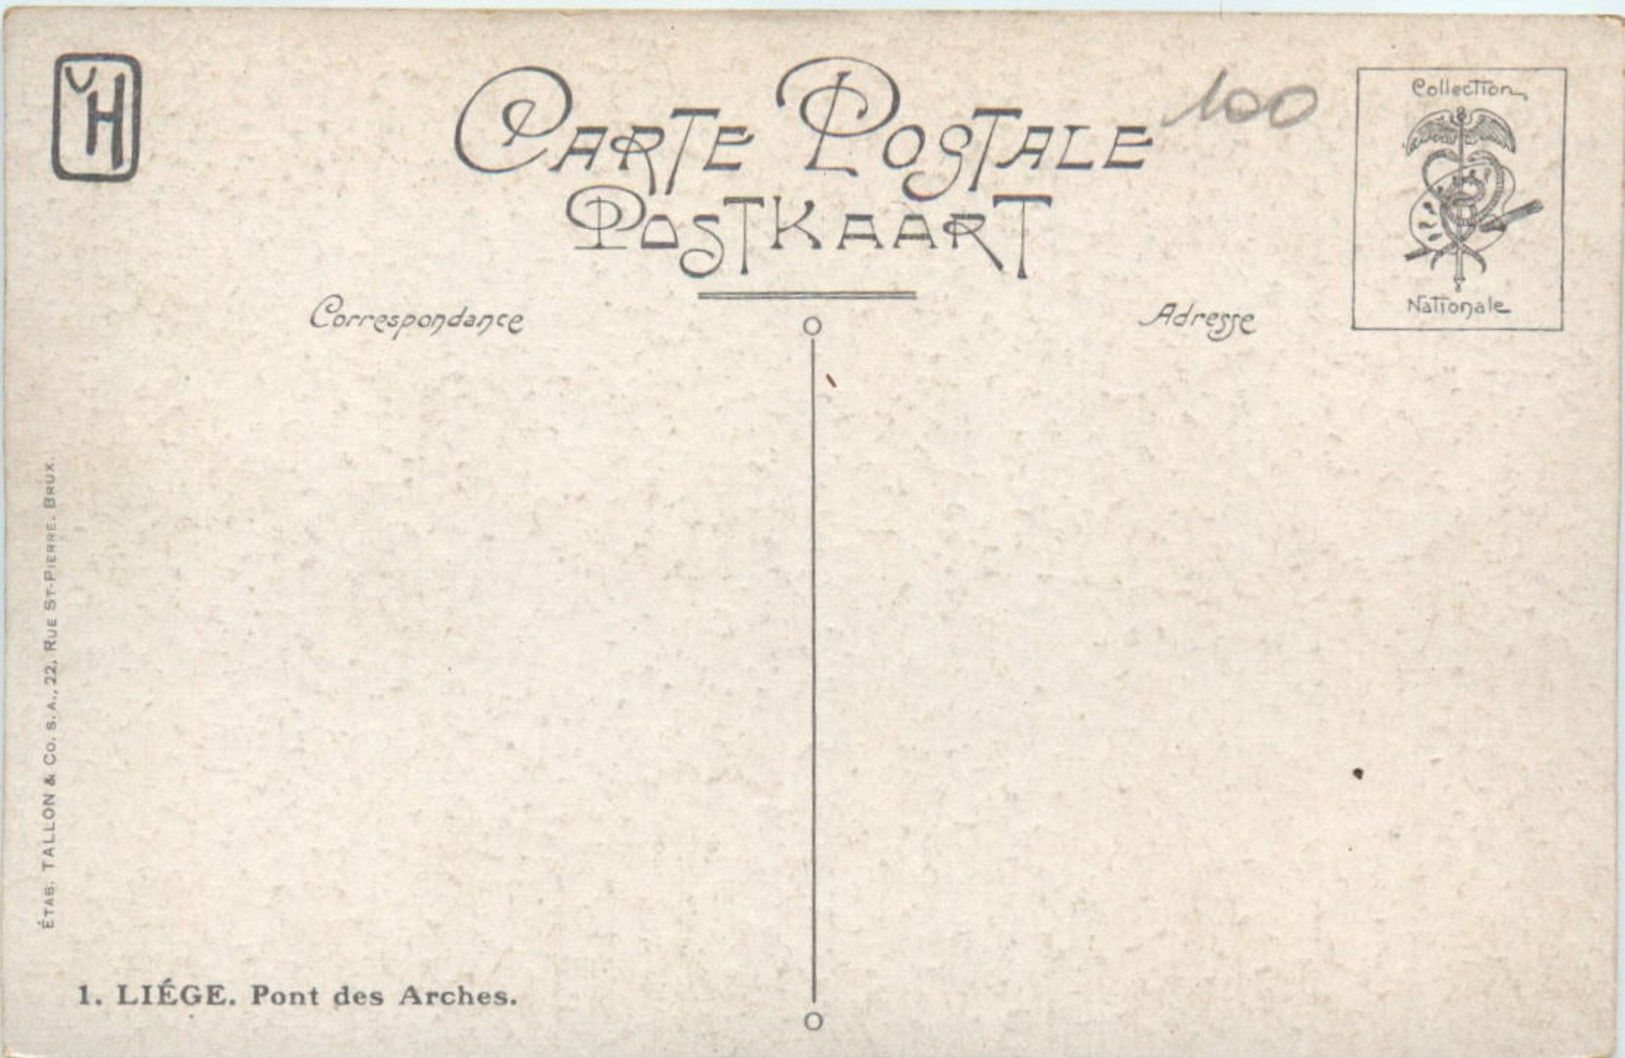 VH
CARTE POSTALE
100
POSTKAART
Collection
Nationale
Correspondance
Adresse
ÉTAB. TALLON & CO. S. A., 22, RUE ST-PIERRE. BRUX.
1. LIÉGE. Pont des Arches.